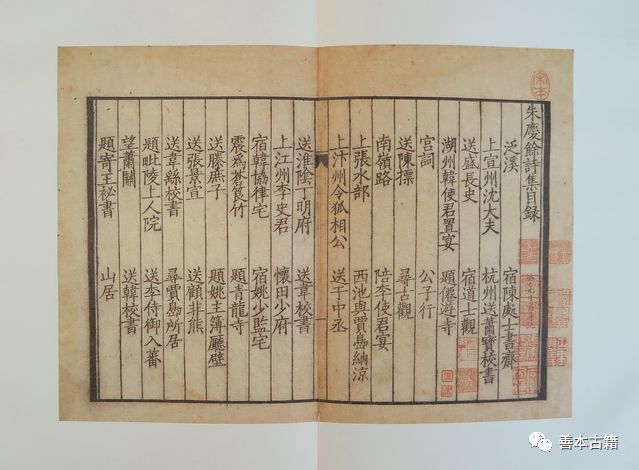 朱慶餘詩集目録
泛溪 宿陳處士書齋
上宣州沈大夫 杭州送蕭寶校書
送盛長史 宿道士觀
湖州韓使君置宴 題僊遊寺
宮詞 公子行
送陳摽 尋古觀
南嶺路 陪李使君宴
上張水部 西池與賈島納涼
上汴州令狐相公 送于中丞
送淮陰丁明府 送韋校書
上江州李史君 懷田少府
宿韓協律宅 宿姚少監宅
震爲蒼筤竹 題青龍寺
送滕庶子 題姚主簿廳壁
送張景宣 送顧非熊
送韋繇校書 尋賈島所居
題毗陵上人院 送李侍御入蕃
望蕭關 送韓校書
題寄王祕書 山居
善本古籍